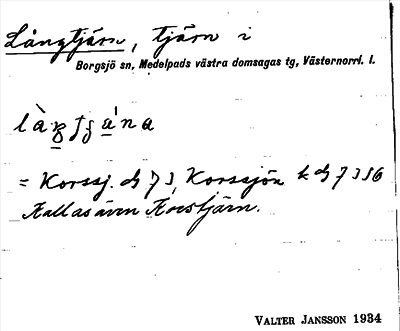 Långtjärn, tjärn i
Borgsjö sn, Medelpads västra domsagas tg, Västernorrl. l.
= Korssj. 73, Korssjön 73 S6
Kallas även Korstjärn.
VALTER JANSSON 1934